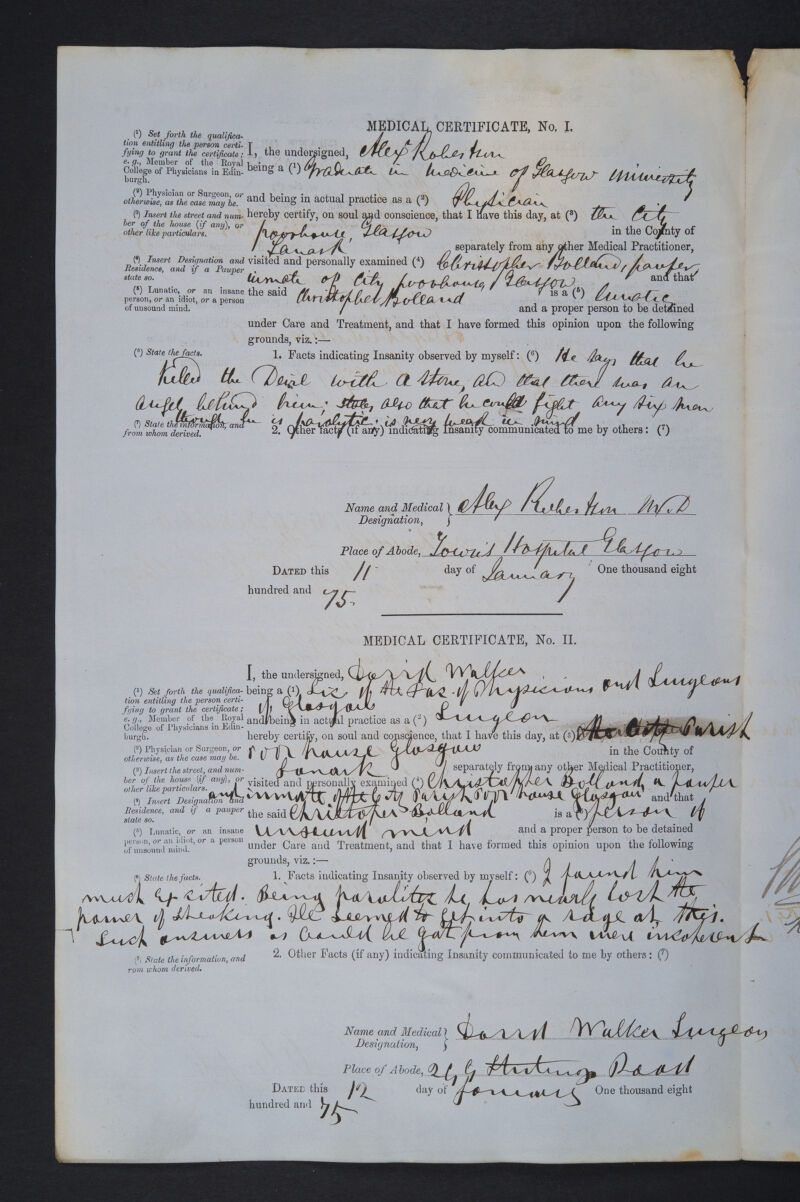 MEDICAL CERTIFICATE, No. I.
(¹) Set forth the qualifica-
tion entitling the person certi-
fying to grant the certificate;
e. g., Member of the Royal
College of Physicians in Edin-
burgh.
I, the undersigned, Alex Robertson
being a (¹) Graduate in Medicine of Glasgow University
(²) Physician or Surgeon, or
otherwise, as the case may be.
and being in actual practice as a (²) Physician
(³) Insert the street and num-
ber of the house (if any), or
other like particulars.
hereby certify, on soul and conscience, that I have this day, at (³) the City
poorhouse, Glasgow in the County of
Lanark separately from any other Medical Practitioner,
(⁴) Insert Designation and
Residence, and if a Pauper
state so.
visited and personally examined (⁴) Christopher Bolland, pauper,
inmate of City poorhouse, Glasgow and that
(⁵) Lunatic, or an insane
person, or an idiot, or a person
of unsound mind.
the said Christopher Bolland is a (⁵) lunatic
and a proper person to be detained
under Care and Treatment, and that I have formed this opinion upon the following
grounds, viz.:—
(⁶) State the facts.
1. Facts indicating Insanity observed by myself: (⁶) He says that he
killed the Devil with a stone, and that there was an
angel behind him; states also that he could fight any six men
though he is paralytic; is very weak in mind
(⁷) State the information, and
from whom derived.
2. Other facts (if any) indicating Insanity communicated to me by others: (⁷)
Name and Medical
Designation, } Alex Robertson M.D
Place of Abode, Town's Hospital Glasgow
DATED this 11 day of January One thousand eight
hundred and 75.
MEDICAL CERTIFICATE, No. II.
I, the undersigned, David Walker
(¹) Set forth the qualifica-
tion entitling the person certi-
fying to grant the certificate;
e. g., Member of the Royal
College of Physicians in Edin-
burgh.
being a (¹) Lic of the Fac of Physicians and Surgeons
of Glasgow
and being in actual practice as a (²) Surgeon
hereby certify, on soul and conscience, that I have this day, at (³) the City Parish
(²) Physician or Surgeon, or
otherwise, as the case may be.
Poor house Glasgow in the County of
(³) Insert the street, and num-
ber of the house (if any), or
other like particulars.
Lanark separately from any other Medical Practitioner,
visited and personally examined (⁴) Christopher Bolland a pauper
(⁴) Insert Designation and
Residence, and if a pauper
state so.
and inmate of the City Parish Poor house Glasgow and that
the said Christopher Bolland is a (⁵) person of
(⁵) Lunatic, or an insane
person, or an idiot, or a person
of unsound mind.
unsound mind and a proper person to be detained
under Care and Treatment, and that I have formed this opinion upon the following
grounds, viz.:—
(⁶) State the facts.
1. Facts indicating Insanity observed by myself: (⁶) I found him
much exsited. Being paralitec he has nearly lost the
power of speaking. He seemed to get into a rage at this.
Such answers as could be gat from him were incoherent
(⁷) State the information, and
rom whom derived.
2. Other Facts (if any) indicating Insanity communicated to me by others: (⁷)
Name and Medical
Designation, } David Walker Surgeon
Place of Abode, Road
DATED this 12 day of January One thousand eight
hundred and 75